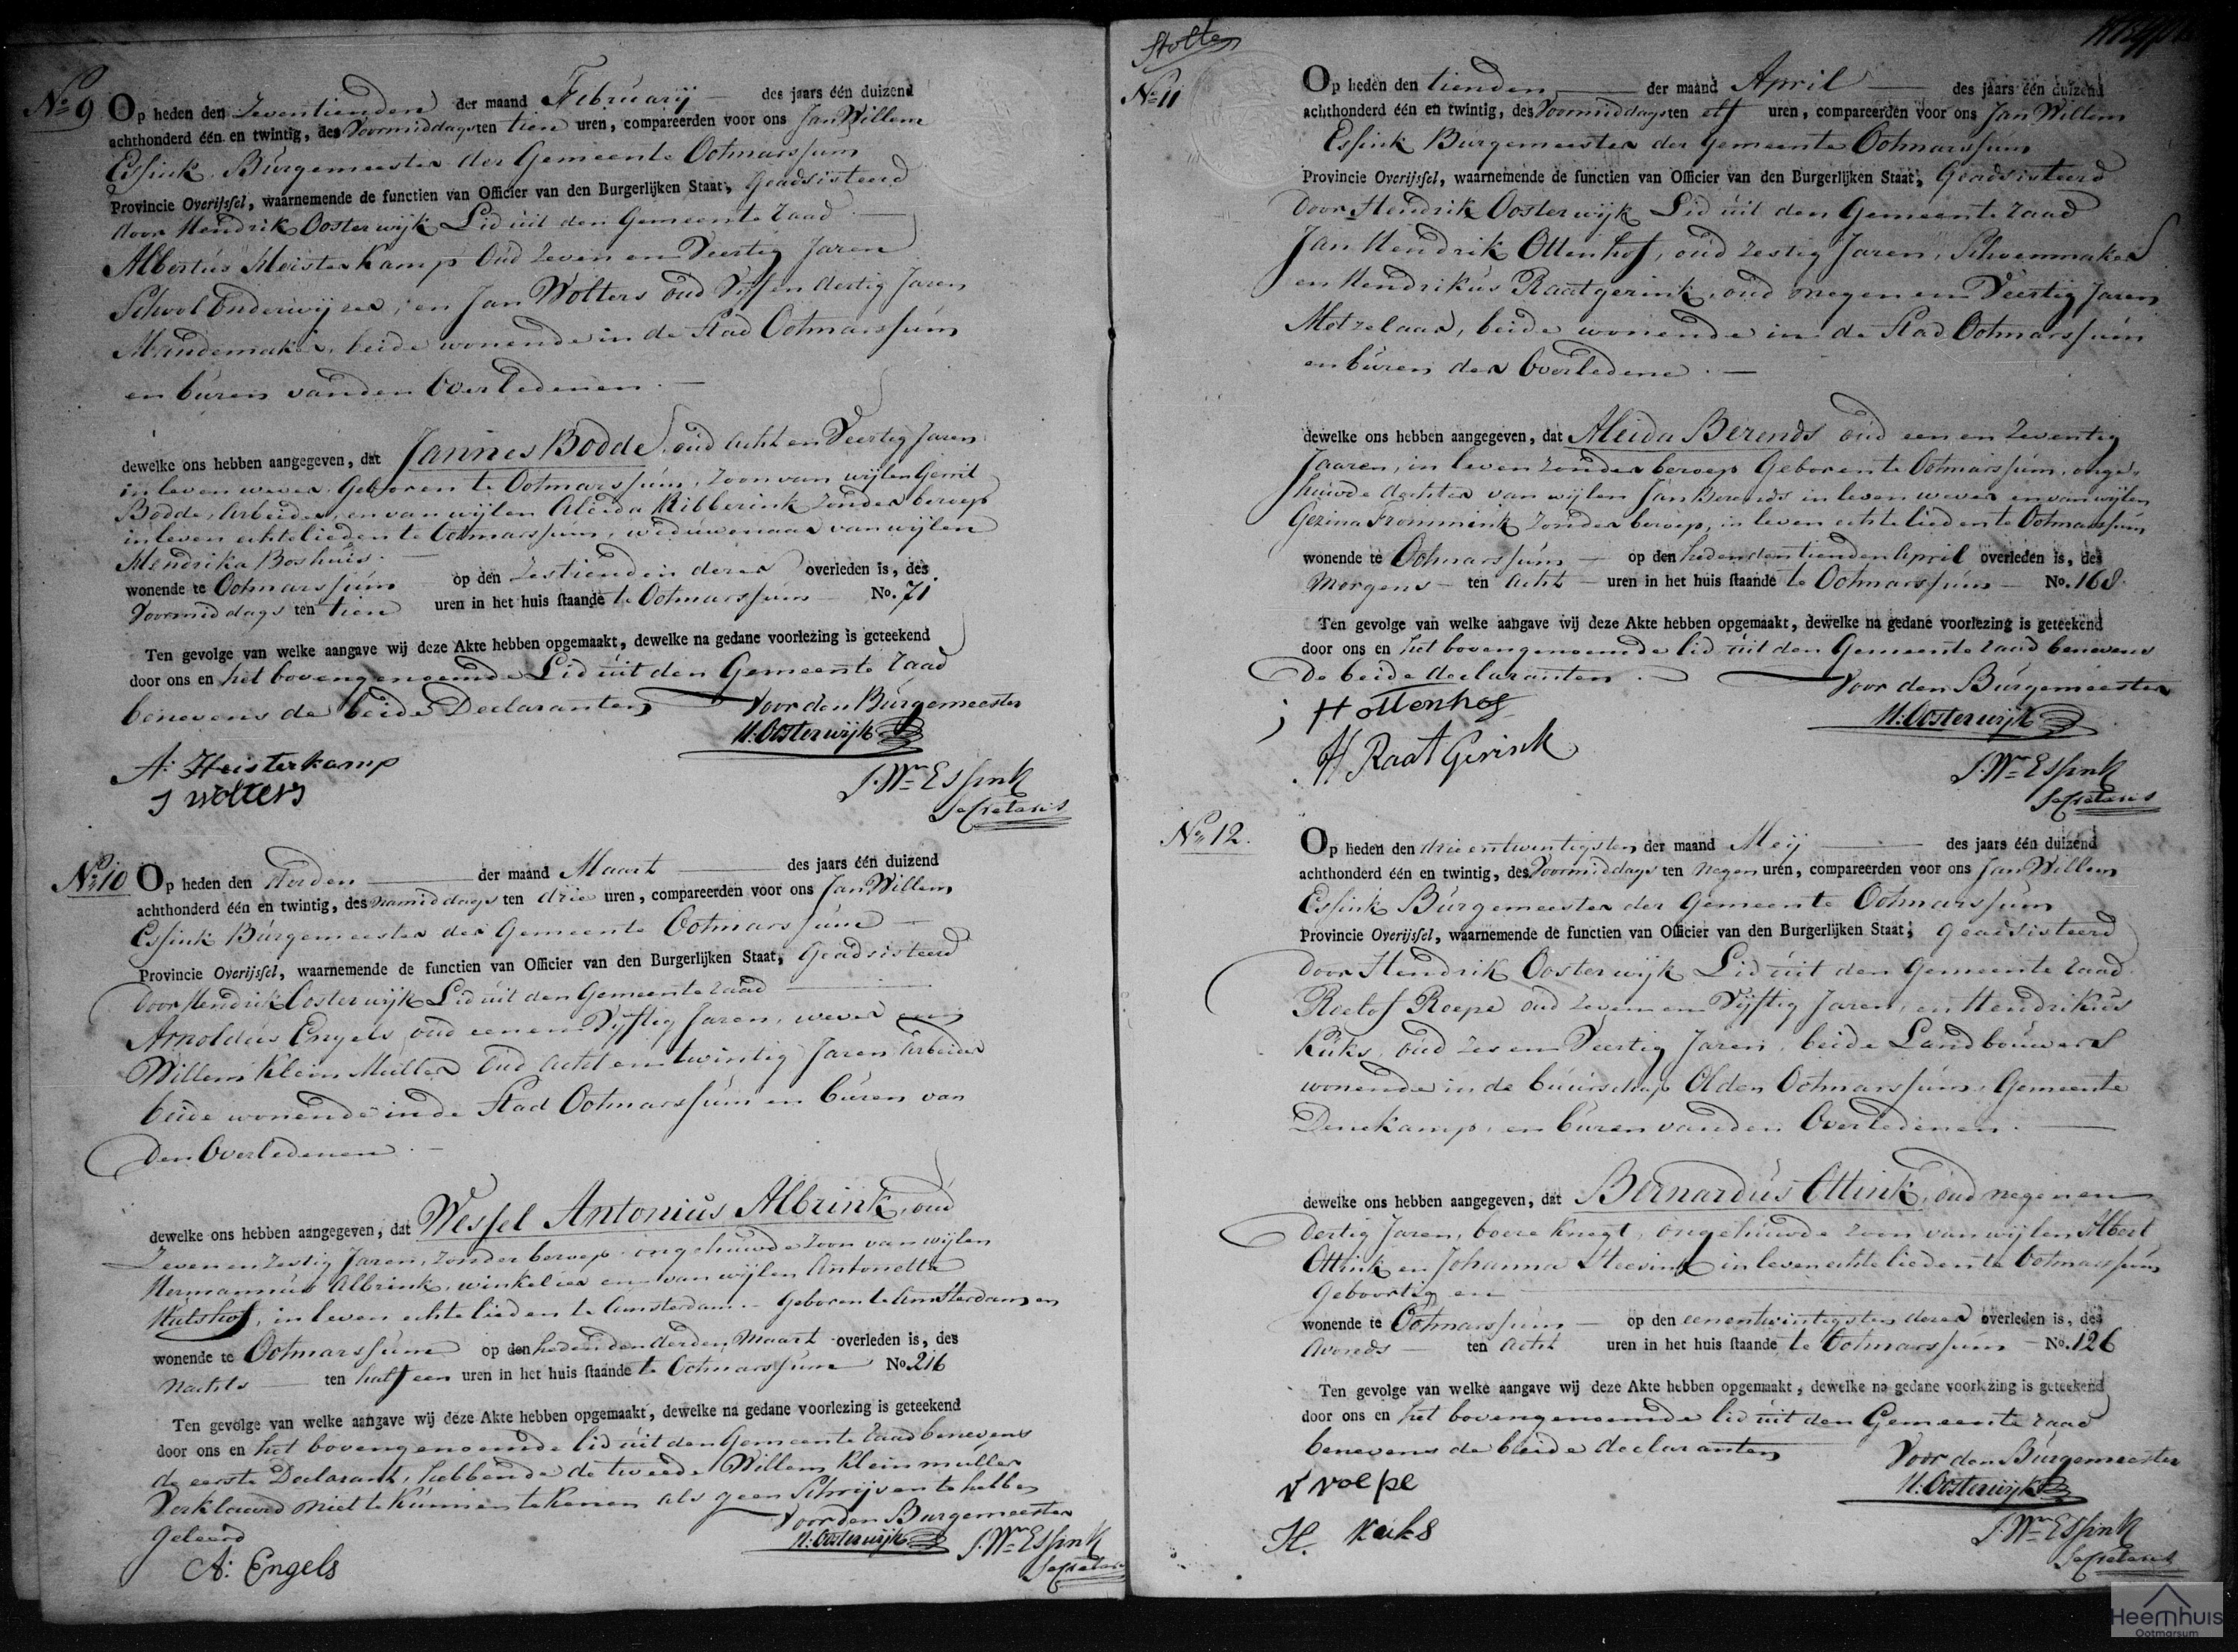 No 9 Op heden den Zeventienden der maand Februarij des jaars één duizend
achthonderd één en twintig, des Voormiddags ten tien uren, compareerden voor ons Jan Willem
Essink, Burgemeester der Gemeente Ootmarssum
Provincie Overijssel, waarnemende de functien van Officier van den Burgerlijken Staat, Geadsisteerd
door Hendrik Oosterwijk Lid uit den Gemeente raad
Albertus Heisterkamp Oud Zeven en Veertig Jaren
School Onderwijzer, en Jan Wolters oud Vijf en dertig Jaren
Mandemaker, beide wonende in de Stad Ootmarssum
en buren van den Overledenen.
dewelke ons hebben aangegeven, dat Jannes Bodde, oud Acht en Veertig Jaren
in leven wever Geboren te Ootmarssum, Zoon van wijlen Gerrit
Bodde, Arbeider, en van wijlen Aleida Ribberink Zonder beroep
in leven echtelieden te Ootmarssum, weduwenaar van wijlen
Hendrika Boshuis.
wonende te Ootmarssum op den Zestienden dezer overleden is, des
Voormiddags ten tien uren in het huis staande te Ootmarssum No. 71
Ten gevolge van welke aangave wij deze Akte hebben opgemaakt, dewelke na gedane voorlezing is geteekend
door ons en het bovengenoemde Lid uit den Gemeente raad
benevens de beide Declaranten
Voor den Burgemeester
H: Oosterwijk
A: Heisterkamp
J wolters
J. Wm Essink
Secretaris
No 10 Op heden den derden der maand Maart des jaars één duizend
achthonderd één en twintig, des namiddags ten drie uren, compareerden voor ons Jan Willem
Essink Burgemeester der Gemeente Ootmarssum
Provincie Overijssel, waarnemende de functien van Officier van den Burgerlijken Staat, Geadsisteerd
door Hendrik Oosterwijk Lid uit den Gemeente raad
Arnoldus Engels oud een en Vijftig Jaren, wever en
Willem Klein Muller Oud acht en twintig Jaren Arbeider
beide wonende in de Stad Ootmarssum en buren van
den Overledenen.
dewelke ons hebben aangegeven, dat Wessel Antonius Albrink, oud
Zeven en Zestig Jaren, zonder beroep ongehuwde Zoon van wijlen
Hermannus Albrink, winkelier en van wijlen Antonetta
Hulshof, in leven echtelieden te Amsterdam. Geboren te Amsterdam en
wonende te Ootmarssum op den heden den derden Maart overleden is, des
Nachts ten half een uren in het huis staande te Ootmarssum No. 216
Ten gevolge van welke aangave wij deze Akte hebben opgemaakt, dewelke na gedane voorlezing is geteekend
door ons en het bovengenoemde lid uit den Gemeente raad benevens
de eerste Declarant, hebbende de tweede Willem Klein muller
Verklaard niet te kunnen tekenen als geen Schrijven te hebben
geleerd
Voor den Burgemeester
H: Oosterwijk J. Wm Essink
Secretaris
A: Engels
Stolte
No 11 Op heden den tienden der maand April des jaars één duizend
achthonderd één en twintig, des Voormiddags ten elf uren, compareerden voor ons Jan Willem
Essink Burgemeester der gemeente Ootmarssum
Provincie Overijssel, waarnemende de functien van Officier van den Burgerlijken Staat, Geadsisteerd
door Hendrik Oosterwijk Lid uit den Gemeente raad
Jan Hendrik Ottenhof, oud zestig Jaren, Schoenmaker
en Hendrikus Raatgerink, oud negen en Veertig Jaren
Metzelaar, beide wonende in de Stad Ootmarssum
en buren der Overledene.
dewelke ons hebben aangegeven, dat Aleida Berends oud een en Zeventig
Jaaren, in leven zonder beroep Geboren te Ootmarssum, onge-
huwde dochter van wijlen Jan Berends in leven wever en van wijlen
Gezina Frommink zonder beroep, in leven echtelieden te Ootmarssum
wonende te Ootmarssum op den heden den tienden April overleden is, des
Morgens ten Acht uren in het huis staande te Ootmarssum No. 168
Ten gevolge van welke aangave wij deze Akte hebben opgemaakt, dewelke na gedane voorlezing is geteekend
door ons en het bovengenoemde lid uit den Gemeente raad benevens
de beide declaranten.
Voor den Burgemeester
H: Oosterwijk
j H ottenhof
H RaatGerink
J. Wm Essink
Secretaris
No 12. Op heden den drie en twintigsten der maand Meij des jaars één duizend
achthonderd één en twintig, des Voormiddags ten negen uren, compareerden voor ons Jan Willem
Essink Burgemeester der Gemeente Ootmarssum
Provincie Overijssel, waarnemende de functien van Officier van den Burgerlijken Staat, geadsisteerd
door Hendrik Oosterwijk Lid uit den Gemeente raad
Roelof Roepe oud zeven en Vijftig Jaren, en Hendrikus
Kuks, oud zes en Veertig Jaren, beide Landbouwers
wonende in de buurschap Olden Ootmarssum, Gemeente
Denekamp, en buren van den Overledenen.
dewelke ons hebben aangegeven, dat Bernardus Ottink, oud negen en
dertig Jaren, boere knegt, ongehuwde zoon van wijlen Albert
Ottink en Johanna Heevink in leven echtelieden te Ootmarssum
geboortig en
wonende te Ootmarssum op den eenentwintigsten dezer overleden is, des
Avonds ten Acht uren in het huis staande te Ootmarssum No. 126
Ten gevolge van welke aangave wij deze Akte hebben opgemaakt, dewelke na gedane voorlezing is geteekend
door ons en het bovengenoemde lid uit den Gemeente raad
benevens de beide declaranten
Voor den Burgemeester
H: Oosterwijk
r roepe
H. Kuks
J. Wm Essink
Secretaris
Heemhuis
Ootmarsum